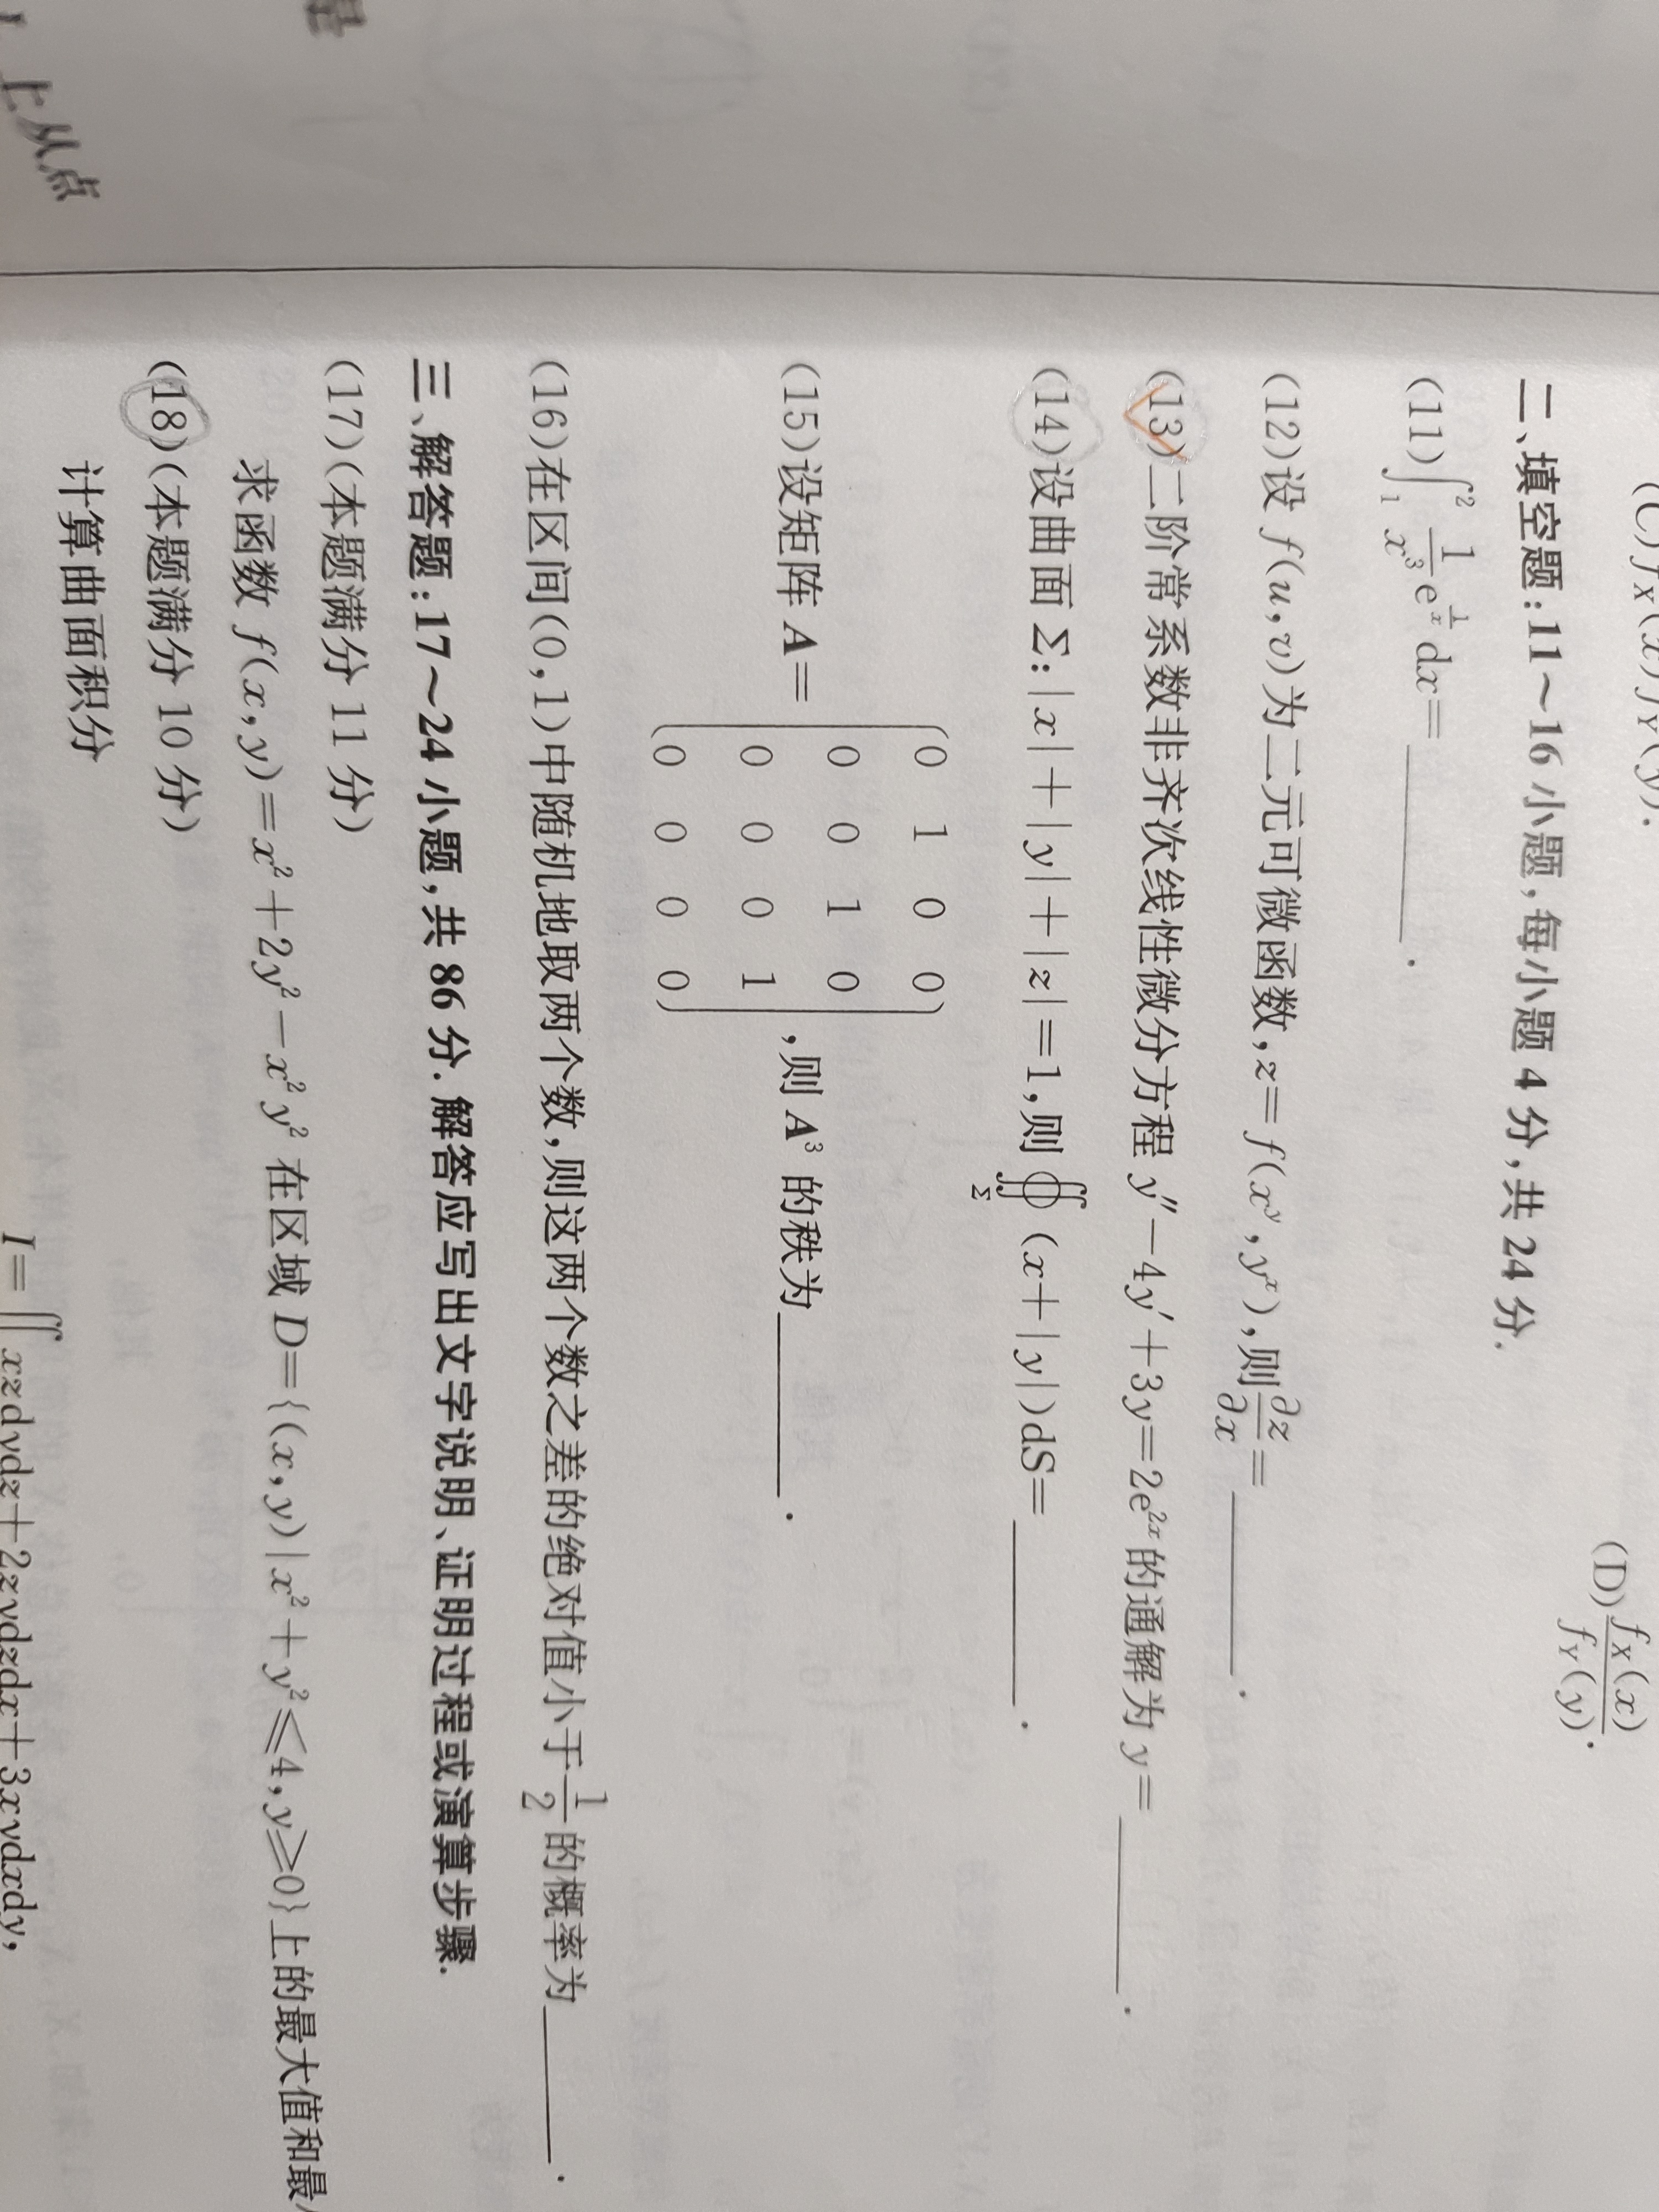 (C) f_X(x)f_Y(y).
(D) \frac{f_X(x)}{f_Y(y)}.
二、填空题:11～16 小题,每小题 4 分,共 24 分.
(11) ∫_1^2 \frac{1}{x^3} e^{\frac{1}{x}} dx=______.
(12)设 f(u,v)为二元可微函数,z=f(x^y,y^x),则 \frac{∂z}{∂x}=______.
(13)二阶常系数非齐次线性微分方程 y″-4y′+3y=2e^{2x}的通解为 y=______.
(14)设曲面 Σ:|x|+|y|+|z|=1,则 ∯_Σ (x+|y|)dS=______.
(15)设矩阵 A=
0 1 0 0
0 0 1 0
0 0 0 1
0 0 0 0
,则 A^3 的秩为______.
(16)在区间(0,1)中随机地取两个数,则这两个数之差的绝对值小于 \frac{1}{2} 的概率为______.
三、解答题:17～24 小题,共 86 分.解答应写出文字说明、证明过程或演算步骤.
(17)(本题满分 11 分)
求函数 f(x,y)=x^2+2y^2-x^2y^2 在区域 D={(x,y)|x^2+y^2≤4,y≥0}上的最大值和最
(18)(本题满分 10 分)
计算曲面积分
I=∬ xzdydz+2zydzdx+3xydxdy,
是
上从点